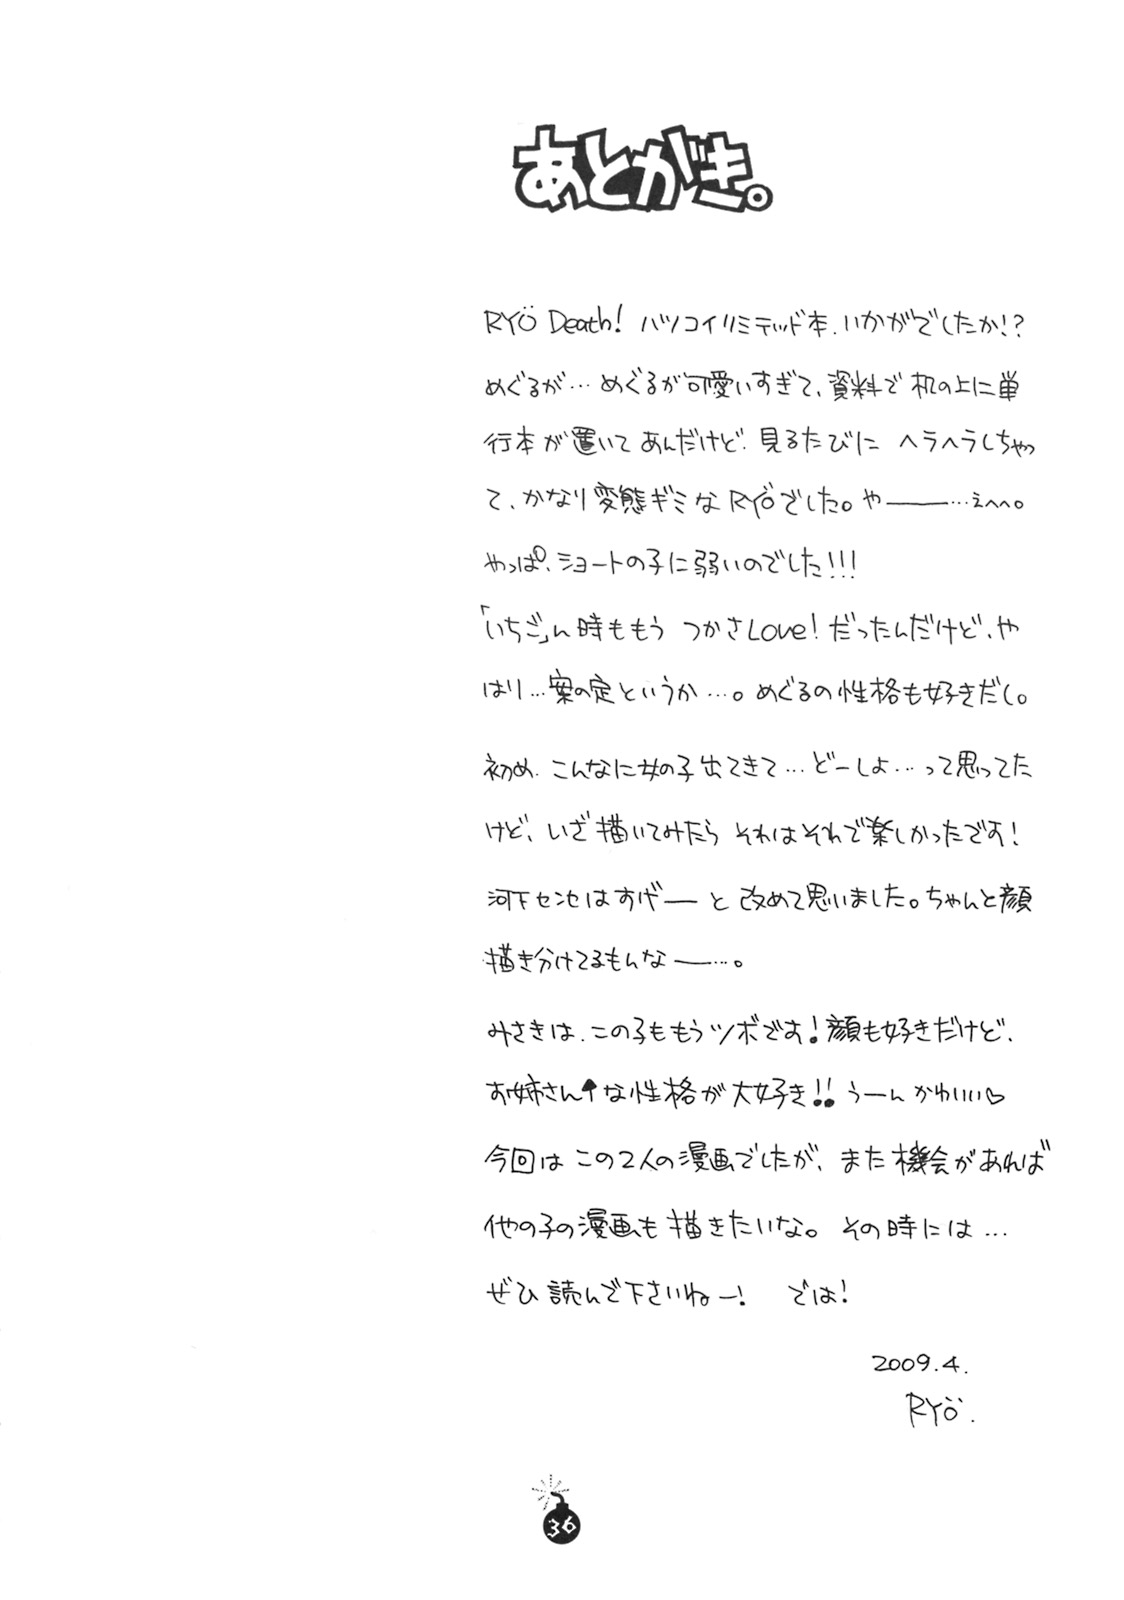 あとがき。
RYÖ Death! ハツコイリミテッド本、いかがでしたか!?
めぐるが…めぐるが可愛いすぎて、資料で机の上に単
行本が置いてあんだけど、見るたびに ヘラヘラしちゃっ
て、かなり変態ギミなRYÖでした。や——…えへへ。
やっぱ、ショートの子に弱いのでした!!!
「いちご」ん時ももう つかさLove! だったんだけど、や
はり…案の定というか…。めぐるの性格も好きだし。
初め、こんなに女の子出てきて…どーしよ…って思ってた
けど、いざ描いてみたら それはそれで楽しかったです!
河下センセはすげーと改めて思いました。ちゃんと顔
描き分けてるもんなー…。
みさきは、この子ももうツボです!顔も好きだけど、
お姉さん↑な性格が大好き!! うーんかわいい♡
今回は この2人の漫画でしたが、また機会があれば
他の子の漫画も描きたいな。その時には…
ぜひ読んで下さいねー! では!
2009.4.
RYÖ.
36